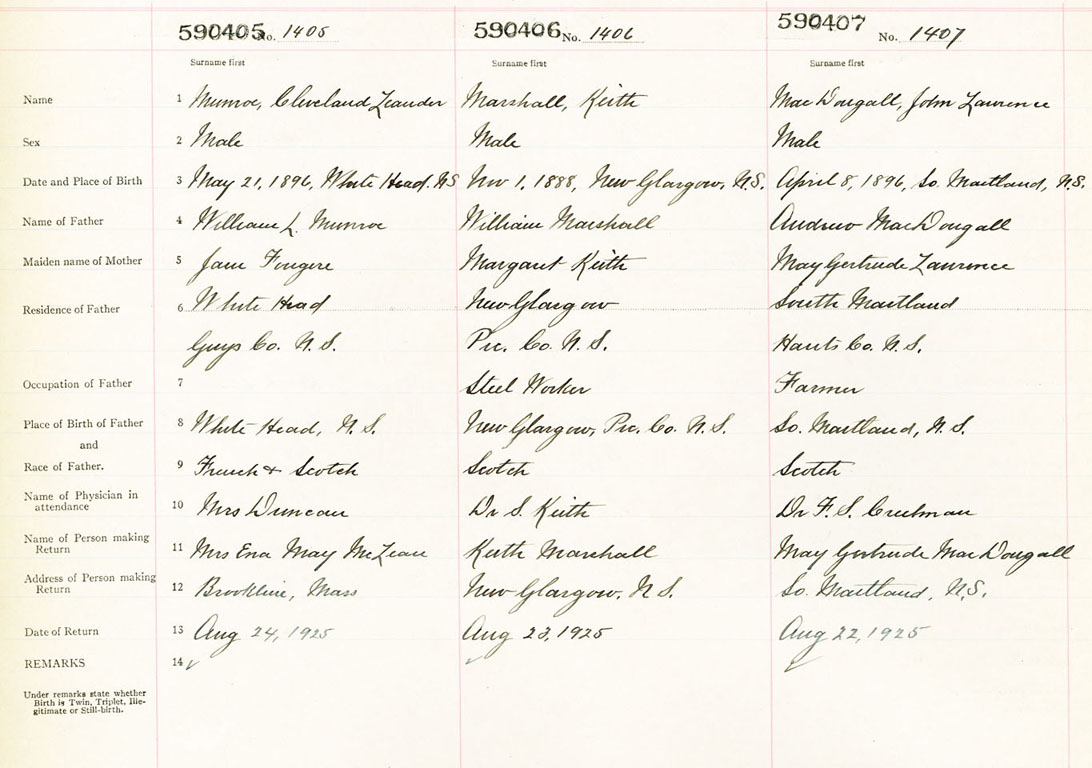 590405 No. 1405 590406 No. 1406 590407 No. 1407
Surname first Surname first Surname first
Name 1 Munroe, Cleveland Leander Marshall, Keith MacDougall, John Lawrence
Sex 2 Male Male Male
Date and Place of Birth 3 May 21, 1896, White Head. N.S Nov 1, 1888, New Glasgow, N.S. April 8, 1896, So. Maitland, N.S.
Name of Father 4 William L. Munroe William Marshall Andrew MacDougall
Maiden name of Mother 5 Jane Fougere Margaret Keith May Gertrude Lawrence
Residence of Father 6 White Head New Glasgow South Maitland
Guys Co. N.S. Pic. Co. N.S. Hants Co. N.S.
Occupation of Father 7 Steel Worker Farmer
Place of Birth of Father 8 White Head, N.S. New Glasgow, Pic. Co. N.S. So. Maitland, N.S.
and
Race of Father. 9 French & Scotch Scotch Scotch
Name of Physician in
attendance 10 Mrs Duncan Dr S. Keith Dr F. S. Creelman
Name of Person making
Return 11 Mrs Ena May McLean Keith Marshall May Gertrude MacDougall
Address of Person making
Return 12 Brookline, Mass New Glasgow. N.S. So. Maitland, N.S.
Date of Return 13 Aug 24, 1925 Aug 23, 1925 Aug 22, 1925
REMARKS 14
Under remarks state whether
Birth is Twin, Triplet, Ille-
gitimate or Still-birth.